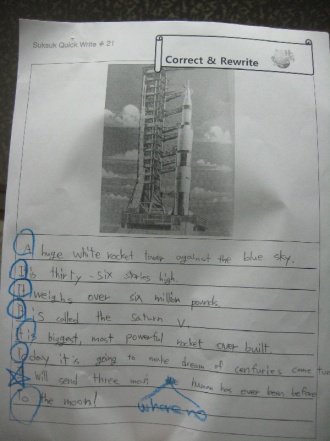 Suksuk Quick Write # 21
Correct & Rewrite
A huge white rocket tower against the blue sky.
It is thirty-six stories high.
It weighs over six million pounds.
It is called the saturn V.
It is biggest, most powerful rocket ever built.
Today it is going to make dream of centuries come
Will send three man human has ever been before
To the moon!
where no